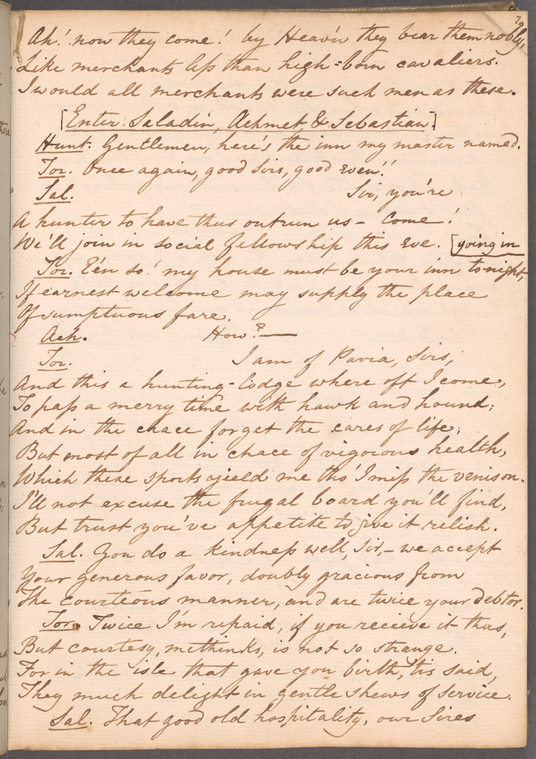 79
Ah! now they come! by Heav'n they bear them nobly,
Like merchants less than high=born cavaliers.
I would all merchants were such men as these.
[Enter Saladin, Achmet, & Sebastian.]
Hunt: Gentlemen, here's the inn my master named.
Tor. Once again, good Sirs, good even!!
Sal. Sir, you're
A hunter to have thus outrun us – Come!
We'll join in social fellowship this Eve. [going in
Tor. E'en so! my house must be your inn to night,
If earnest welcome may supply the place
Of sumptuous fare.
Ach. How?—
Tor. I am of Pavia, Sirs;
And this a hunting-lodge where oft I come,
To pass a merry time with hawk and hound;
And in the chace forget the cares of life;
But most of all in chace of vigorous health,
Which these sports yield me tho' I miss the venison.
I'll not excuse the frugal board you'll find,
But trust you've appetite to give it relish.
Sal. You do a kindness well, Sir,– we accept
Your generous favor, doubly gracious from
The courteous manner, and are twice your debtor.
Tor. Twice I'm repaid, if you receive it thus,
But courtesy, methinks, is not so strange.
For in the isle that gave you birth, 'tis said,
They much delight in gentle shews of service.
Sal. That good old hospitality, our Sires